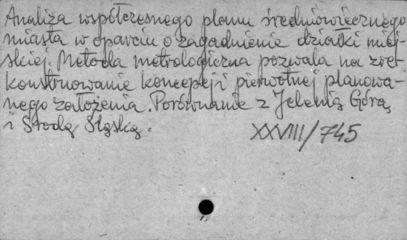 Analiza współczesnego planu średniowiecznego
miasta w oparciu o zagadnienie działki miej-
skiej. Metoda metrologiczna pozwala na zre-
konstruowanie koncepcji pierwotnej planowa-
nego założenia. Porównanie z Jelenią Górą
i Środą Śląską.
XXVIII/745